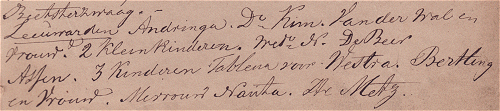 Beetsterzwaag.
Leeuwarden Andringa. Ds Kim. Van der Wal en
vrouw. 2 kleinkinderen. Wede N. De Beer
Assen. 3 Kinderen Tablena voor Westra. Bertling
en Vrouw. Mevrouw Nauta. De Metz.